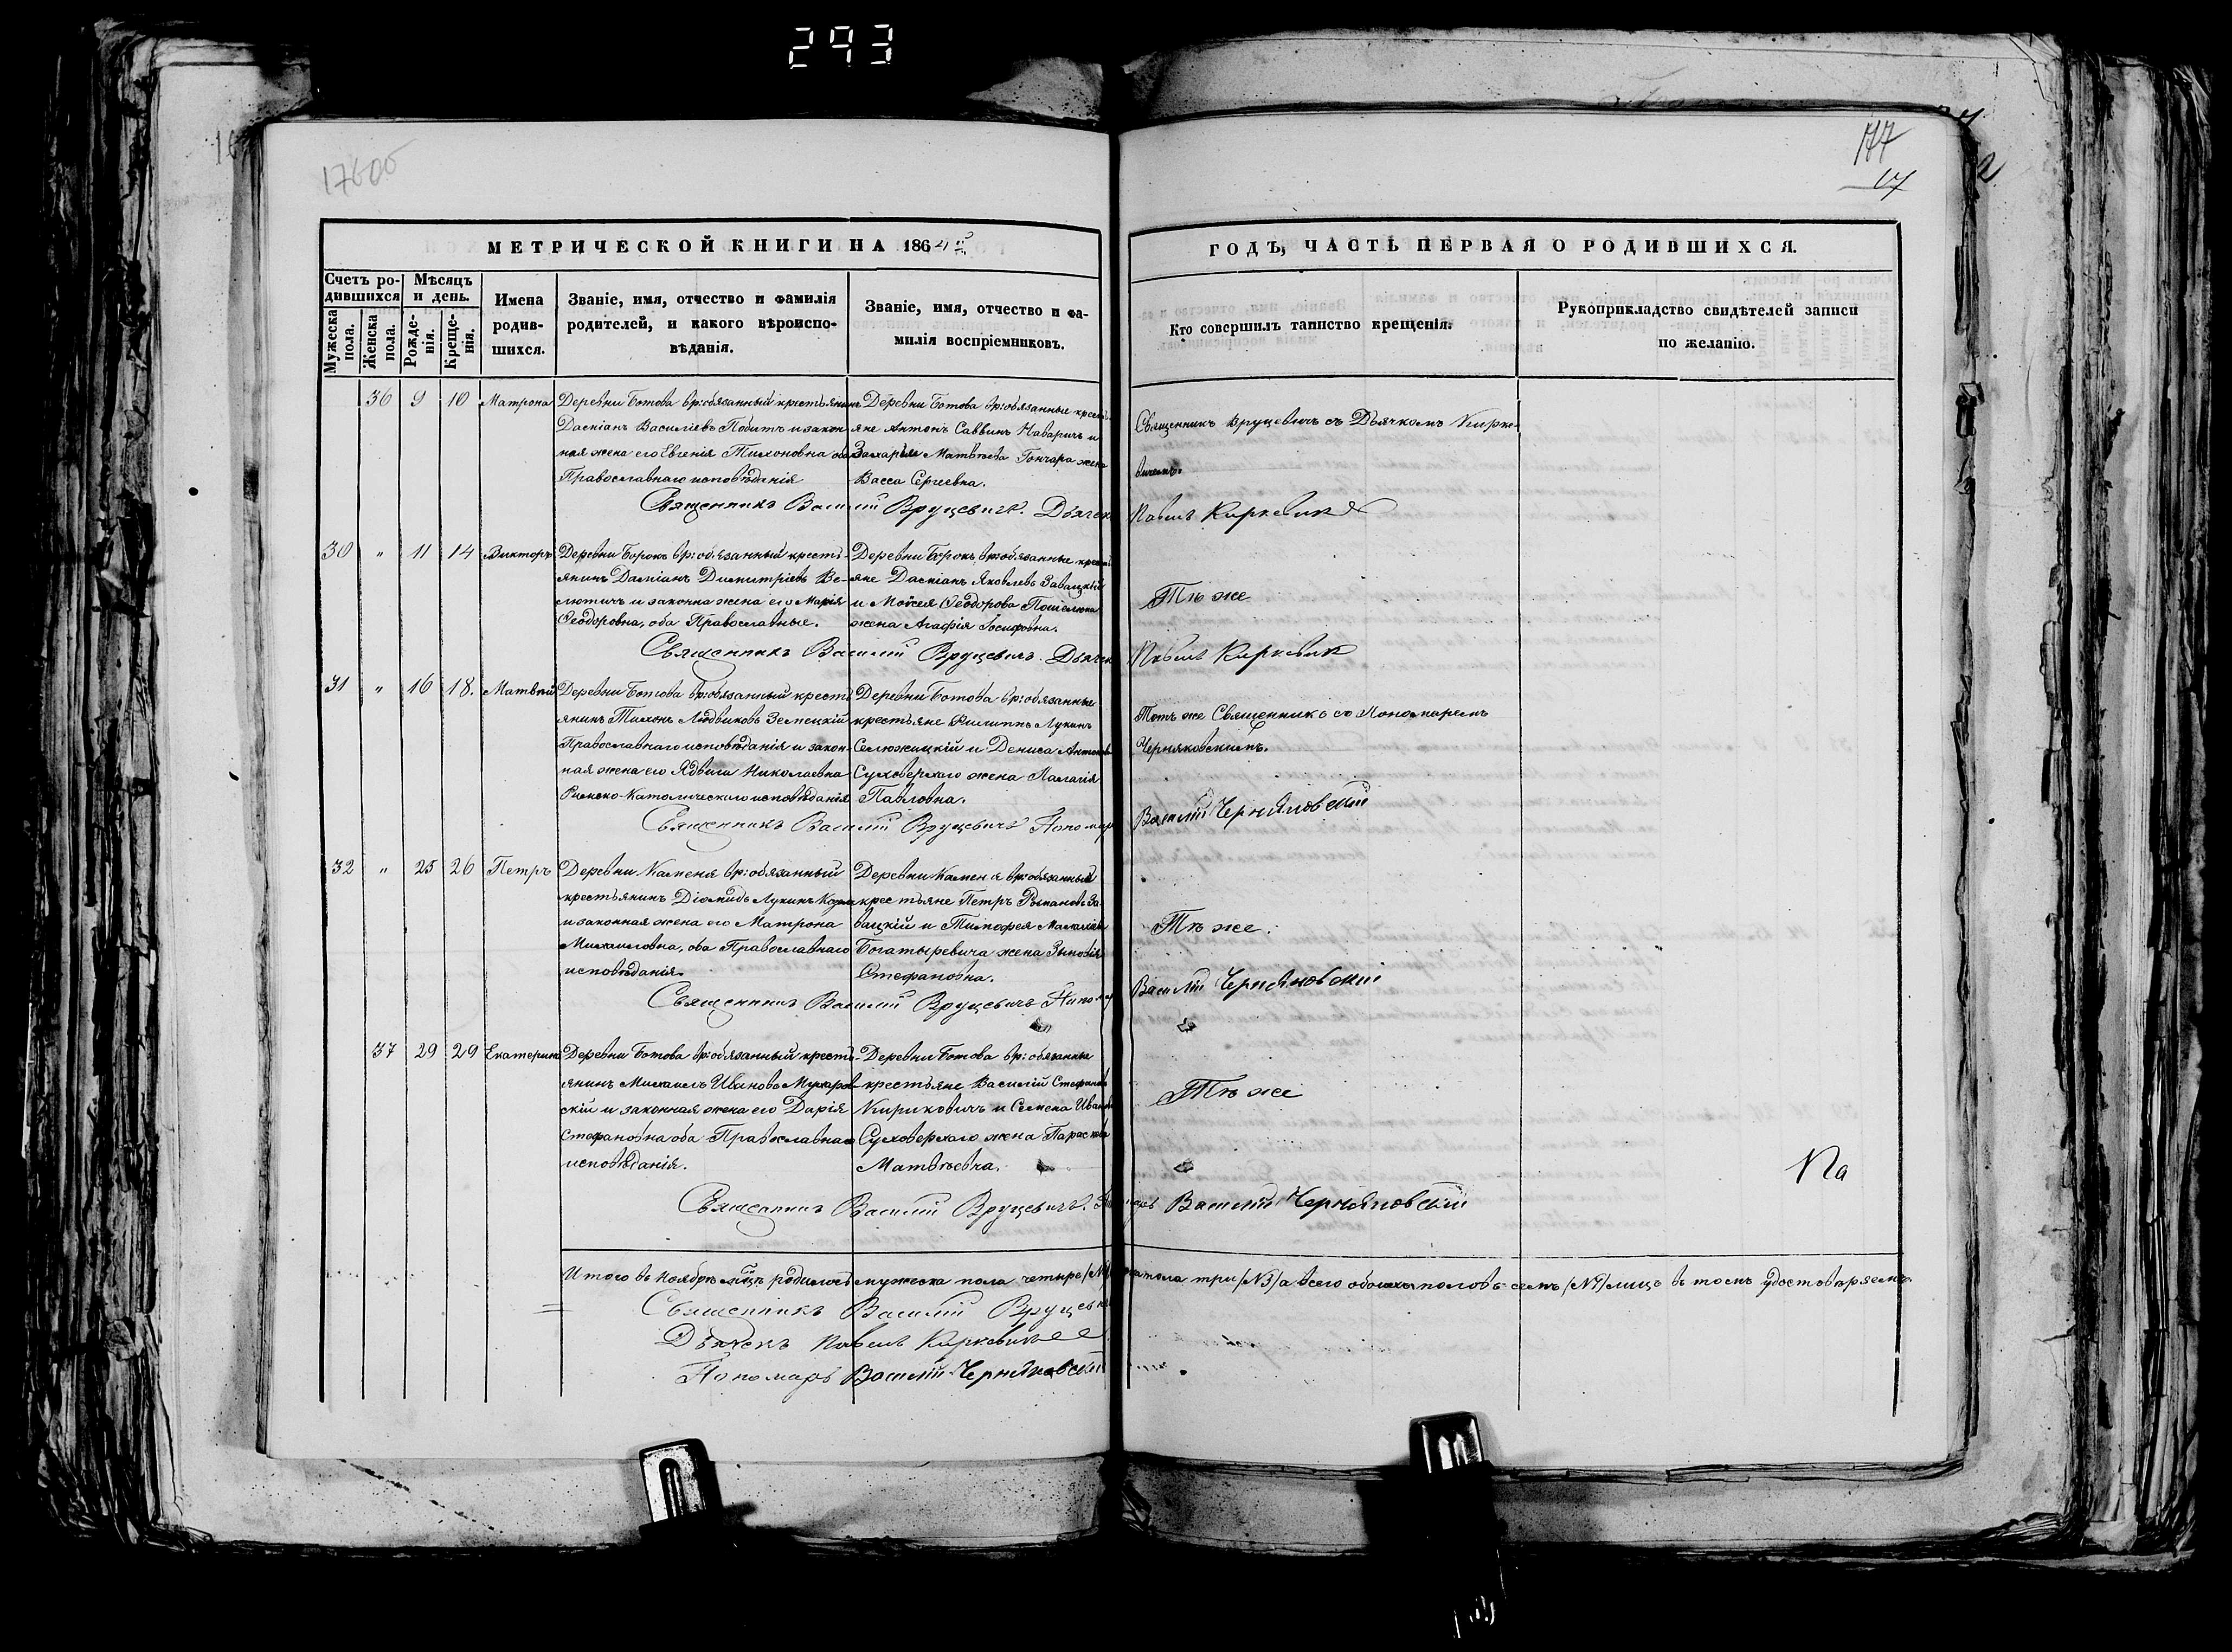 293
17605
177
17
МЕТРИЧЕСКОЙ КНИГИ НА 1864й
ГОДЪ, ЧАСТЬ ПЕРВАЯ О РОДИВШИХСЯ.
Счетъ ро-
дившихся
Мужеска пола.
Женска пола.
Мѣсяцъ
и день.
Рожде-
нія.
Креще-
нія.
Имена
родив-
шихся.
Званіе, имя, отчество и фамилія
родителей, и какого вѣроиспо-
вѣданія.
Званіе, имя, отчество и фа-
милія воспріемниковъ.
Кто совершилъ таинство крещенія.
Рукоприкладство свидѣтелей записи
по желанію.
36 9 10 Матрона
Деревни Ботова вр:обязанный крестьянинъ
Даміанъ Василіевъ Побитъ и закон-
ная жена его Евгенія Тихоновна оба
Православнаго исповѣданія
Деревни Ботова вр:обязанные кресть-
яне Антонъ Саввинъ Наваричъ и
Захарія Матвѣева Гончара жена
Васса Сергеевна.
Священникъ Вруцевичъ съ Дьячкомъ Кирке-
вичемъ.
Священникъ Василій Вруцевичъ. Дьячекъ Павелъ Киркевичъ
30 " 11 14 Викторъ
Деревни Борокъ вр:обязанный кресть-
янинъ Даміанъ Димитріевъ Ве-
лютичъ и законна жена его Марія
Ѳеодоровна, оба Православные.
Деревни Борокъ вр:обязанные кресть-
яне Даміанъ Яковлевъ Завацкій
и Мойсея Ѳеодорова Пошелюка
жена Агафія Іосифовна.
Тѣ же
Священникъ Василій Вруцевичъ. Дьячекъ Павелъ Киркевичъ
31 " 16 18. Матвѣй
Деревни Ботова вр:обязанный кресть-
янинъ Тихонъ Людвиковъ Земецкій
Православнаго исповѣданія и закон-
ная жена его Ядвига Николаевна
Римско-Католическаго исповѣданія
Деревни Ботова вр:обязанные
крестьяне Филиппъ Лукинъ
Селюжицкій и Дениса Антонова
Суховерхаго жена Палагія
Павловна.
Тотъ же Священникъ со Пономаремъ
Черняковскимъ.
Священникъ Василій Вруцевичъ Пономарь Василій Черняковскій
32 " 25 26 Петръ
Деревни Каменя вр:обязанный
крестьянинъ Діомидъ Лукинъ
и законная жена его Матрона
Михаиловна, оба Православнаго
исповѣданія.
Деревни Каменя вр:обязанный
крестьяне Петръ Романовъ За-
вацкій и Тимофея
Богатыревича жена Зыновія
Стефановна.
Тѣ же.
Священникъ Василій Вруцевичъ Пономарь Василій Черняковскій
37 29 29 Екатерина
Деревни Ботова вр:обязанный кресть-
янинъ Михаилъ Ивановъ Мухаров-
скій и законная жена его Дарія
Стефановна оба Православнаго
исповѣданія.
Деревни Ботова вр: обязанные
крестьяне Василій Стефановъ
Кириковичъ и Семена Иванова
Суховерхаго жена Параскева
Матвѣевна.
Тѣ же
На
Священникъ Василій Вруцевичъ. Пономарь Василій Черняковскій
Итого въ Ноябрѣ мцѣ родилось мужеска пола четыре (№4) женска пола три (№3) а всего обоихъ половъ семь (№7) лицъ въ томъ удостовѣряемъ
Священникъ Василій Вруцевичъ
Дьячекъ Павелъ Киркевичъ
Пономарь Василій Черняковскій